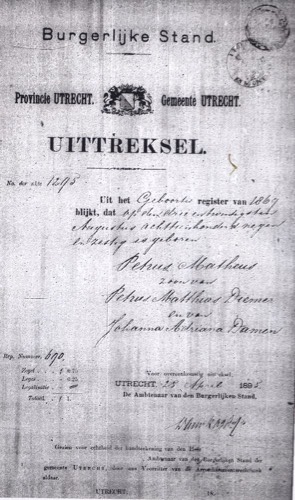 Burgerlijke Stand.
Provincie UTRECHT. Gemeente UTRECHT.
UITTREKSEL.
No. der akte 1295
Uit het Geboorte register van 1869
blijkt, dat op den drie en twintigsten
Augustus achttienhonderd negen
en zestig is geboren
Petrus Matheus
zoon van
Petrus Matthias Diemer
en van
Johanna Adriana Damen
Rep. Nummer, 690.
Zegel
Leges - 0.25
Legalisatie
Totaal
Voor overeenkomstig uittreksel,
UTRECHT, 25 April 1895.
De Ambtenaar van den Burgerlijken Stand,
Gezien voor echtheid der handteekening van den Heer
Ambtenaar van den Burgerlijken Stand der
gemeente UTRECHT, door ons Voorzitter van de Arrondissements-rechtbank
aldaar.
UTRECHT, 18